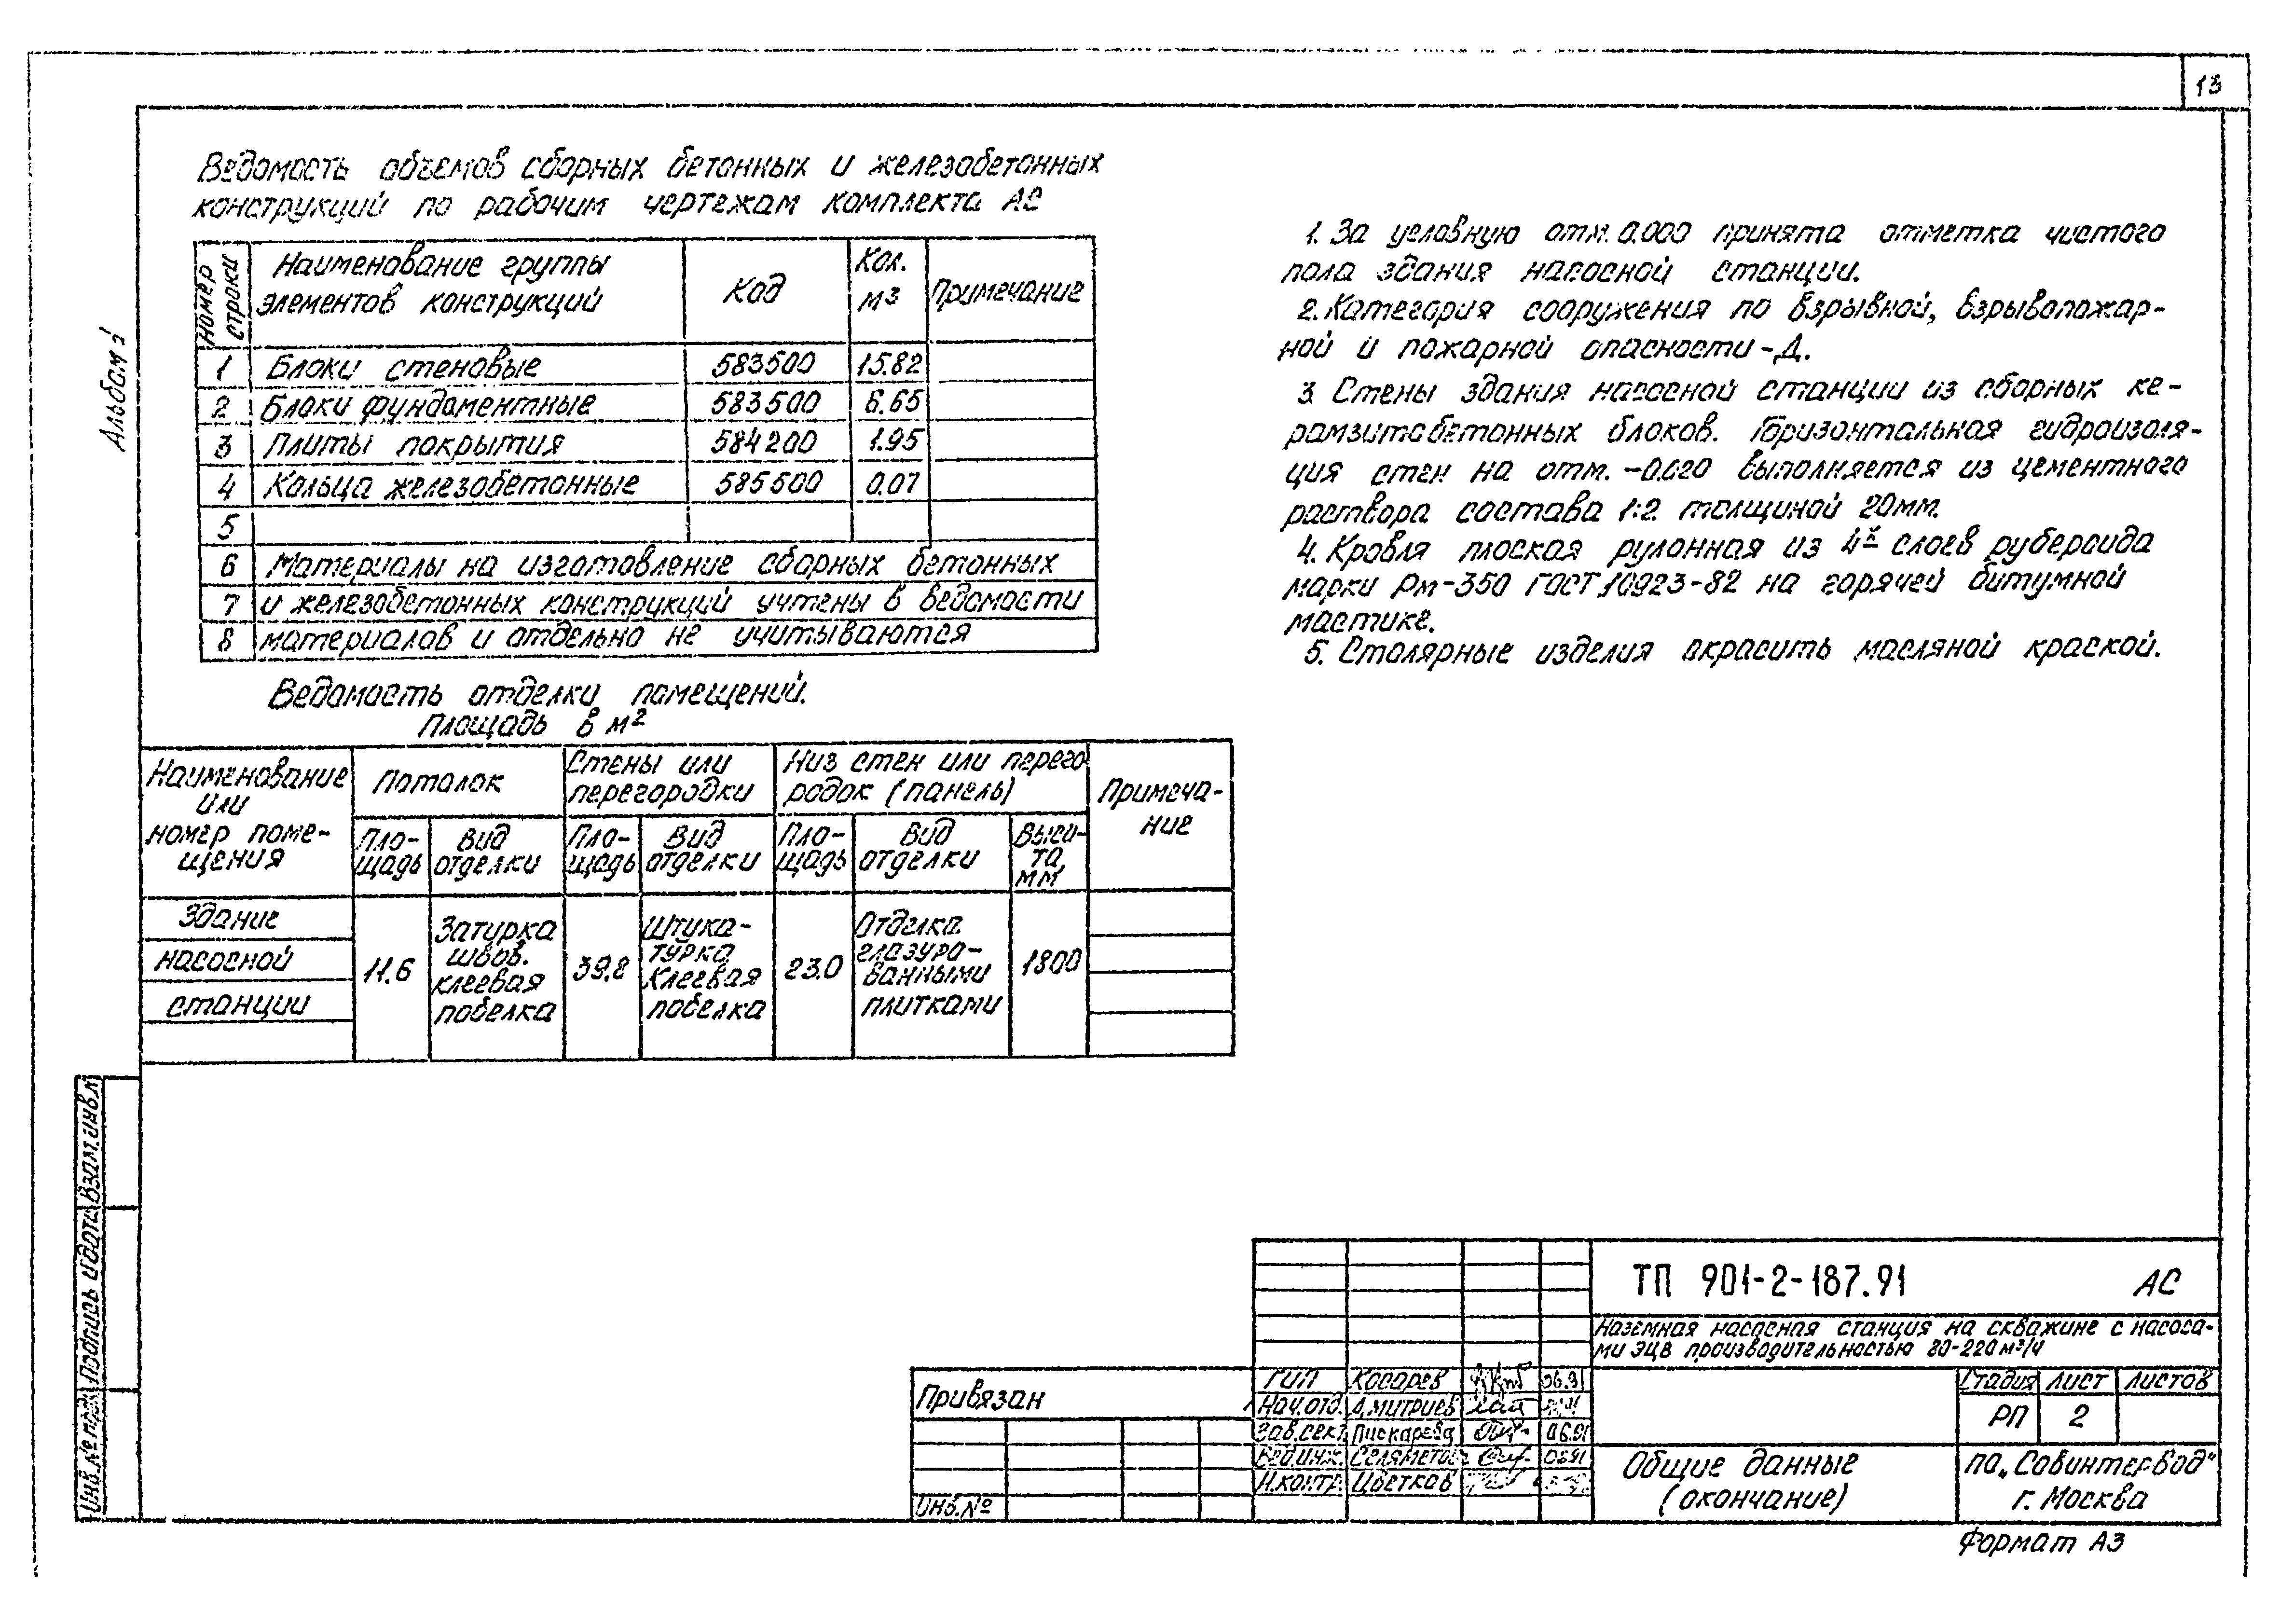 13
Альбом 1
Ведомость объемов сборных бетонных и железобетонных
конструкций по рабочим чертежам комплекта АС
Номер строки
Наименование группы элементов конструкций
Код
Кол. м3
Примечание
1 Блоки стеновые 583500 15.82
2 Блоки фундаментные 583500 6.65
3 Плиты покрытия 584200 1.95
4 Кольца железобетонные 585500 0.07
5
6 Материалы на изготовление сборных бетонных
7 и железобетонных конструкций учтены в ведомости
8 материалов и отдельно не учитываются
Ведомость отделки помещений.
Площадь в м2
Наименование или номер поме-щения
Потолок
Стены или перегородки
Низ стен или перего родок (панель)
Примеча-ние
Пло-щадь
Вид отделки
Пло-щадь
Вид отделки
Пло-щадь
Вид отделки
Высо-та, мм
Здание насосной станции
11.6
Затирка швов. клеевая побелка
39.8
Штука-турка Клеевая побелка
23.0
Отделка глазуро-ванными плитками
1800
1. За условную отм. 0.000 принята отметка чистого
пола здания насосной станции.
2. Категория сооружения по взрывной, взрывопожар-
ной и пожарной опасности-Д.
3. Стены здания насосной станции из сборных ке-
рамзитобетонных блоков. Горизонтальная гидроизоля-
ция стен на отм. -0.020 выполняется из цементного
раствора состава 1:2 толщиной 20мм.
4. Кровля плоская рулонная из 4х слоев рубероида
марки Рм-350 ГОСТ 10923-82 на горячей битумной
мастике.
5. Столярные изделия окрасить масляной краской.
Взам.инв.№
Подпись и дата
Инв.№ подл.
Привязан
Инв.№
ГИП Косарев 06.91
Нач.отд. Дмитриев
Зав.сект. Пискарева 06.91
Вед.инж. Селяметов 06.91
Н.контр. Цветков
ТП 901-2-187.91 АС
Наземная насосная станция на скважине с насоса-
ми ЭЦВ производительностью 80-220 м3/ч
Стадия Лист Листов
РП 2
Общие данные
(окончание)
ПО „Совинтервод"
г. Москва
Формат А3